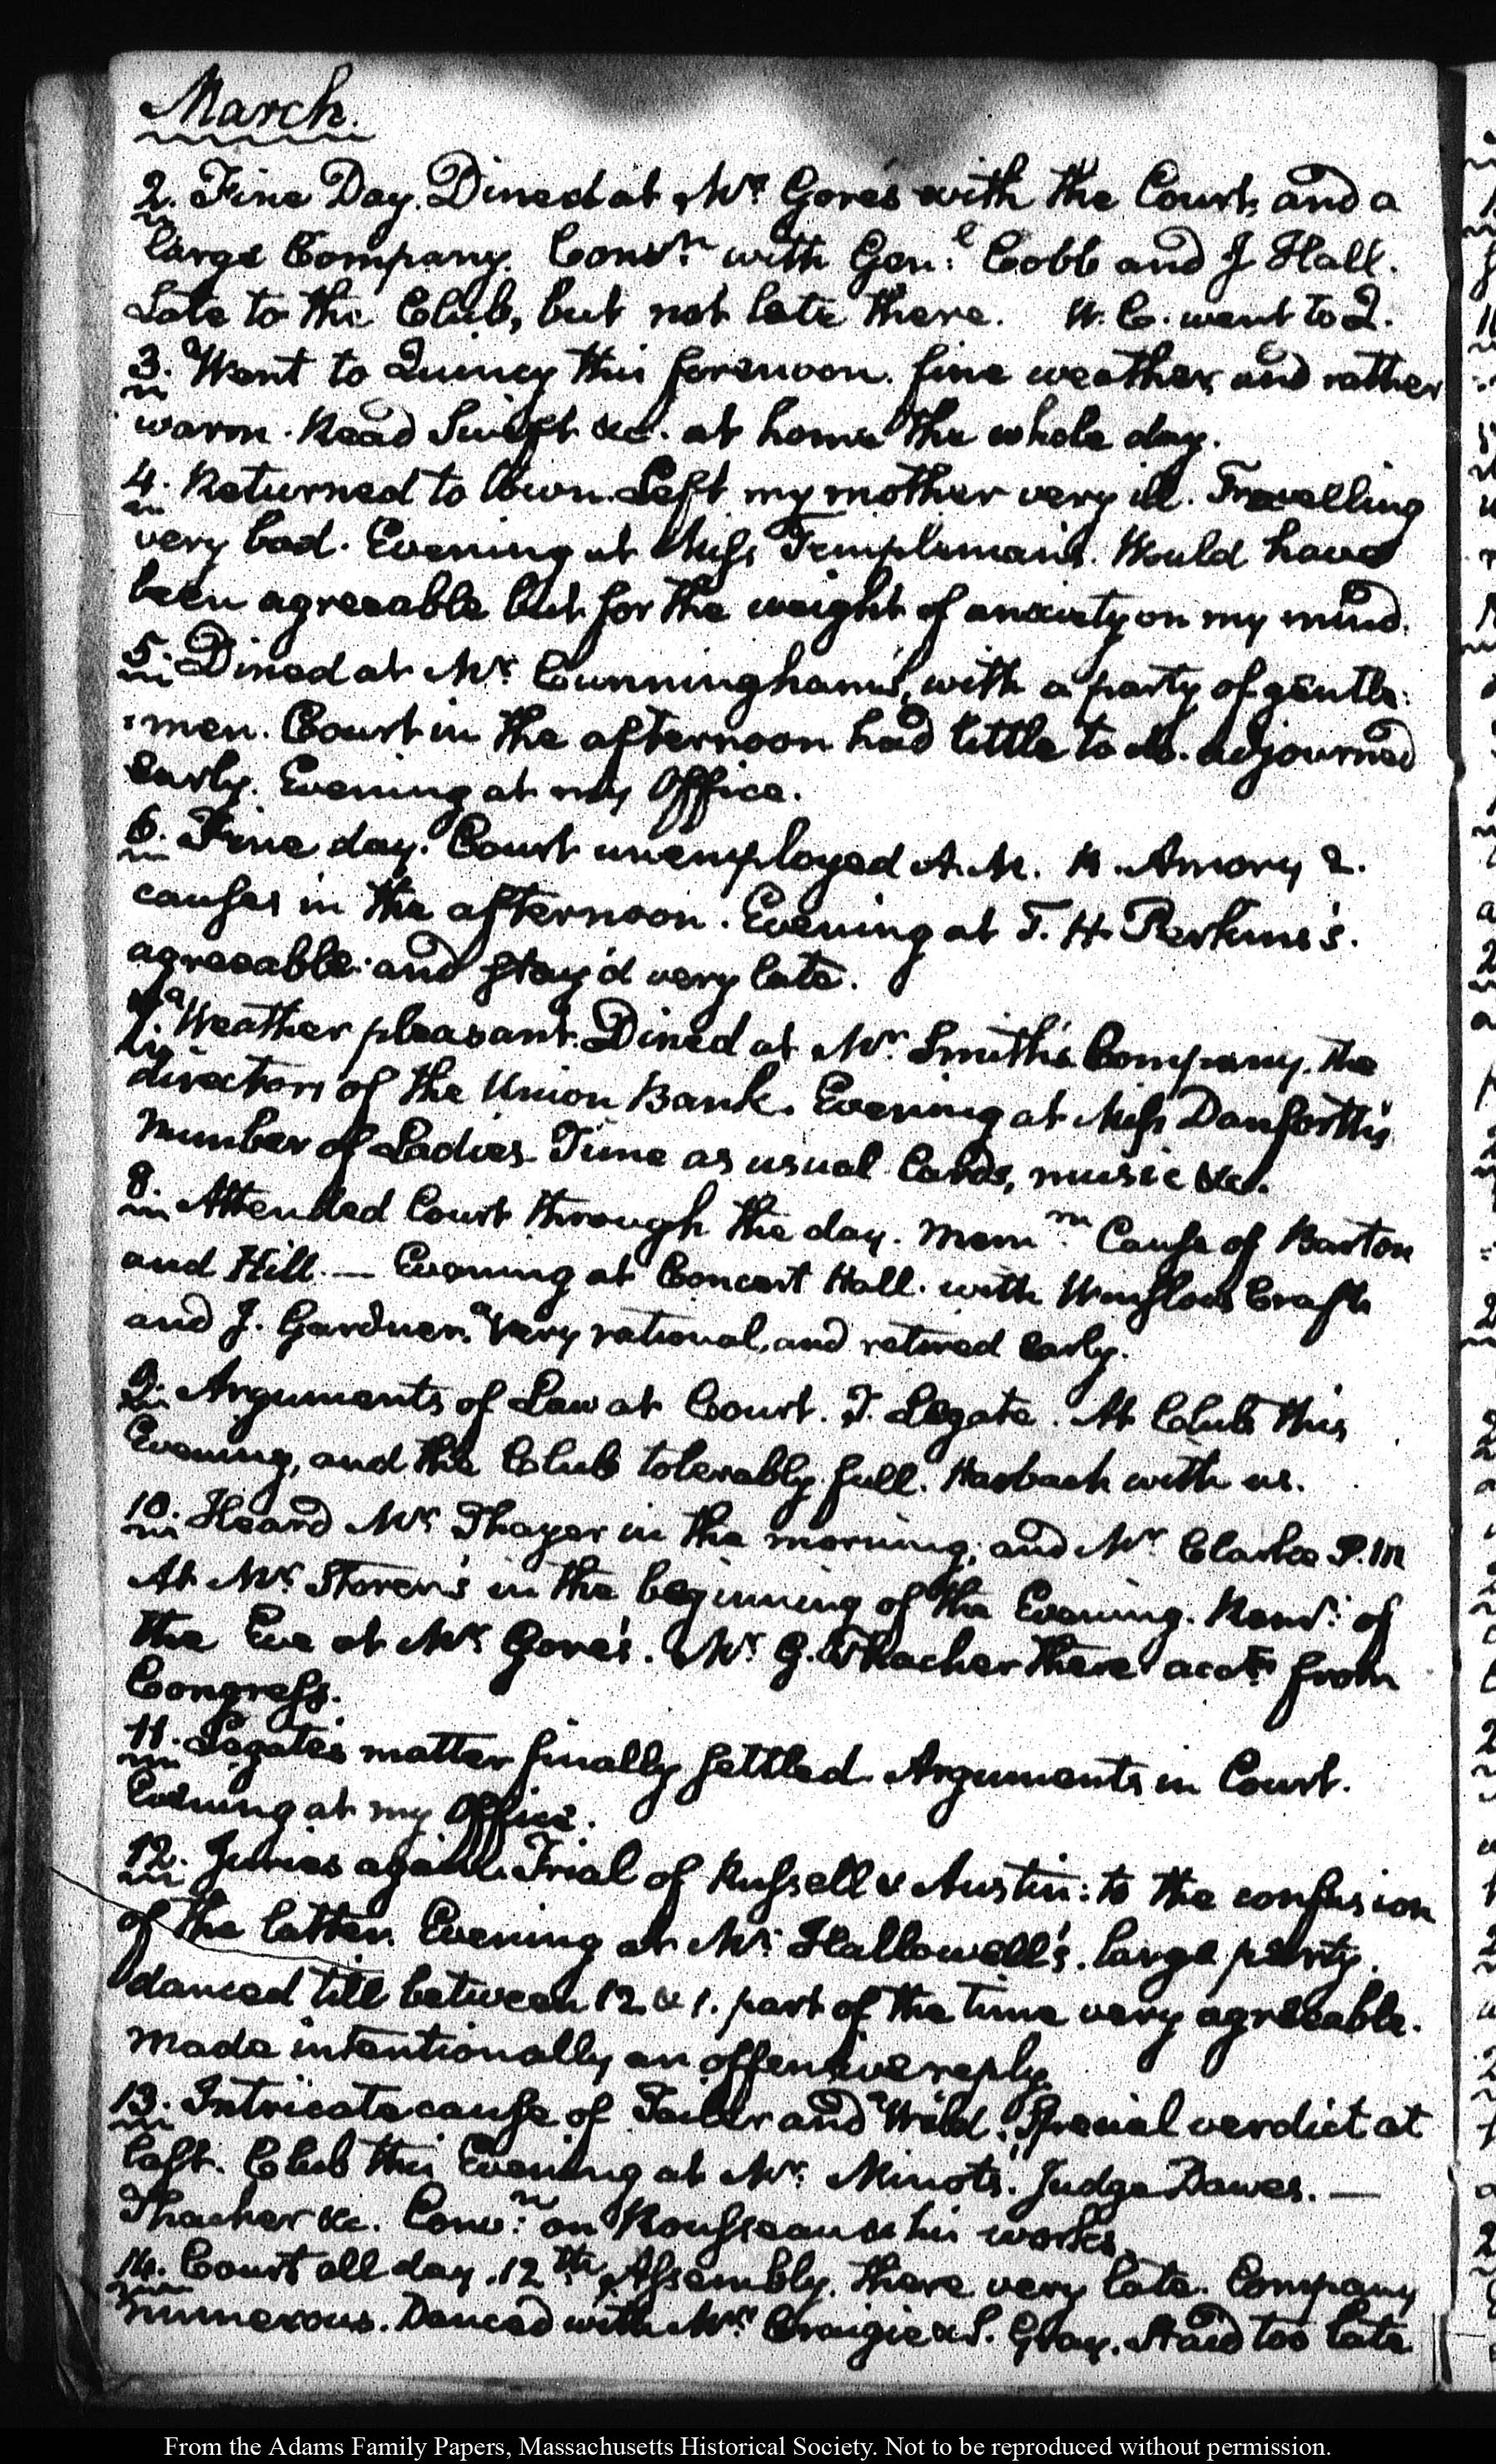 March.
2. Fine Day. Dined at Mr. Gore's with the Court, and a
large Company. Convn. with Genl. Cobb and J Hall.
Late to the Club, but not late there. W. C. went to Q.
3. Went to Quincy this forenoon. fine weather, and rather
warm. Read Swift &c. at home the whole day.
4. Returned to town. Left my mother very ill. Travelling
very bad. Evening at Miss Templeman's. Would have
been agreeable but for the weight of anxiety on my mind.
5. Dined at Mr. Cunningham's, with a party of gentle:
:men. Court in the afternoon had little to do. adjourned
early. Evening at my Office.
6. Fine day. Court unemployed A.M. Amory 2.
causes in the afternoon. Evening at T. H. Perkins's.
agreeable: and stay'd very late.
7. Weather pleasant. Dined at Mr. Smith's Company, the
directors of the Union Bank. Evening at Miss Danforth's
Number of Ladies. Time as usual. Cards, music &c.
8. Attended Court through the day. Cause of Barton
and Hill. — Evening at Concert Hall. with Winslow Crafts
and J. Gardner. Very rational, and retired early.
9. Arguments of Law at Court. T. Legate. At Club this
Evening, and the Club tolerably full. Harbach with us.
10. Heard Mr. Thayer in the morning, and Mr. Clarke P.M
At Mr. Storer's in the beginning of the Evening. Remr. of
the Eve at Mr. Gore's. Mr. G. Thacher there from
Congress.
11. Legate's matter finally settled. Arguments in Court.
Evening at my Office.
12. Juries again. Trial of Russell & Austin: to the confusion
of the latter. Evening at Mr. Hallowell's. large party.
danced till between 12 & 1. part of the time very agreeable.
made intentionally an offensive reply.
13. Intricate cause of and Wild. Special verdict at
last. Club this Evening at Mr. Minot's. Judge Dawes. —
Thacher &c. Convn. on Rousseau & his works.
14. Court all day. 12th. Assembly. there very late. Company
numerous. Danced with Mrs. Craigie & S. Gray. Staid too late
From the Adams Family Papers, Massachusetts Historical Society. Not to be reproduced without permission.